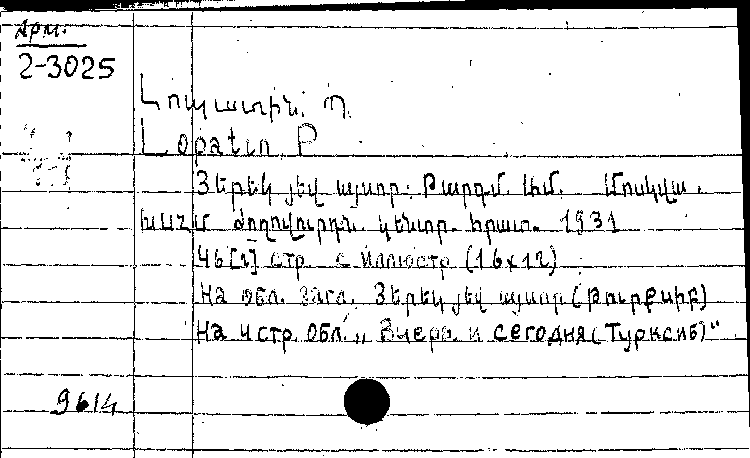 Арм.
2-3025
Լոպատին. Պ.
Lopatin P
Յերեկ յեվ այսոր. Թարգմ. Լ.Մ. Մոսկվա.
ԽՍՀՄ ժողովուրդն. կենտր. հրատ. 1931
46[2] стр. с иллюстр (16x12)
На обл. загл. Յերեկ յեվ այսոր (Թուրքսիբ)
На 4 стр. обл. „Вчера и сегодня (Турксиб)“
9614